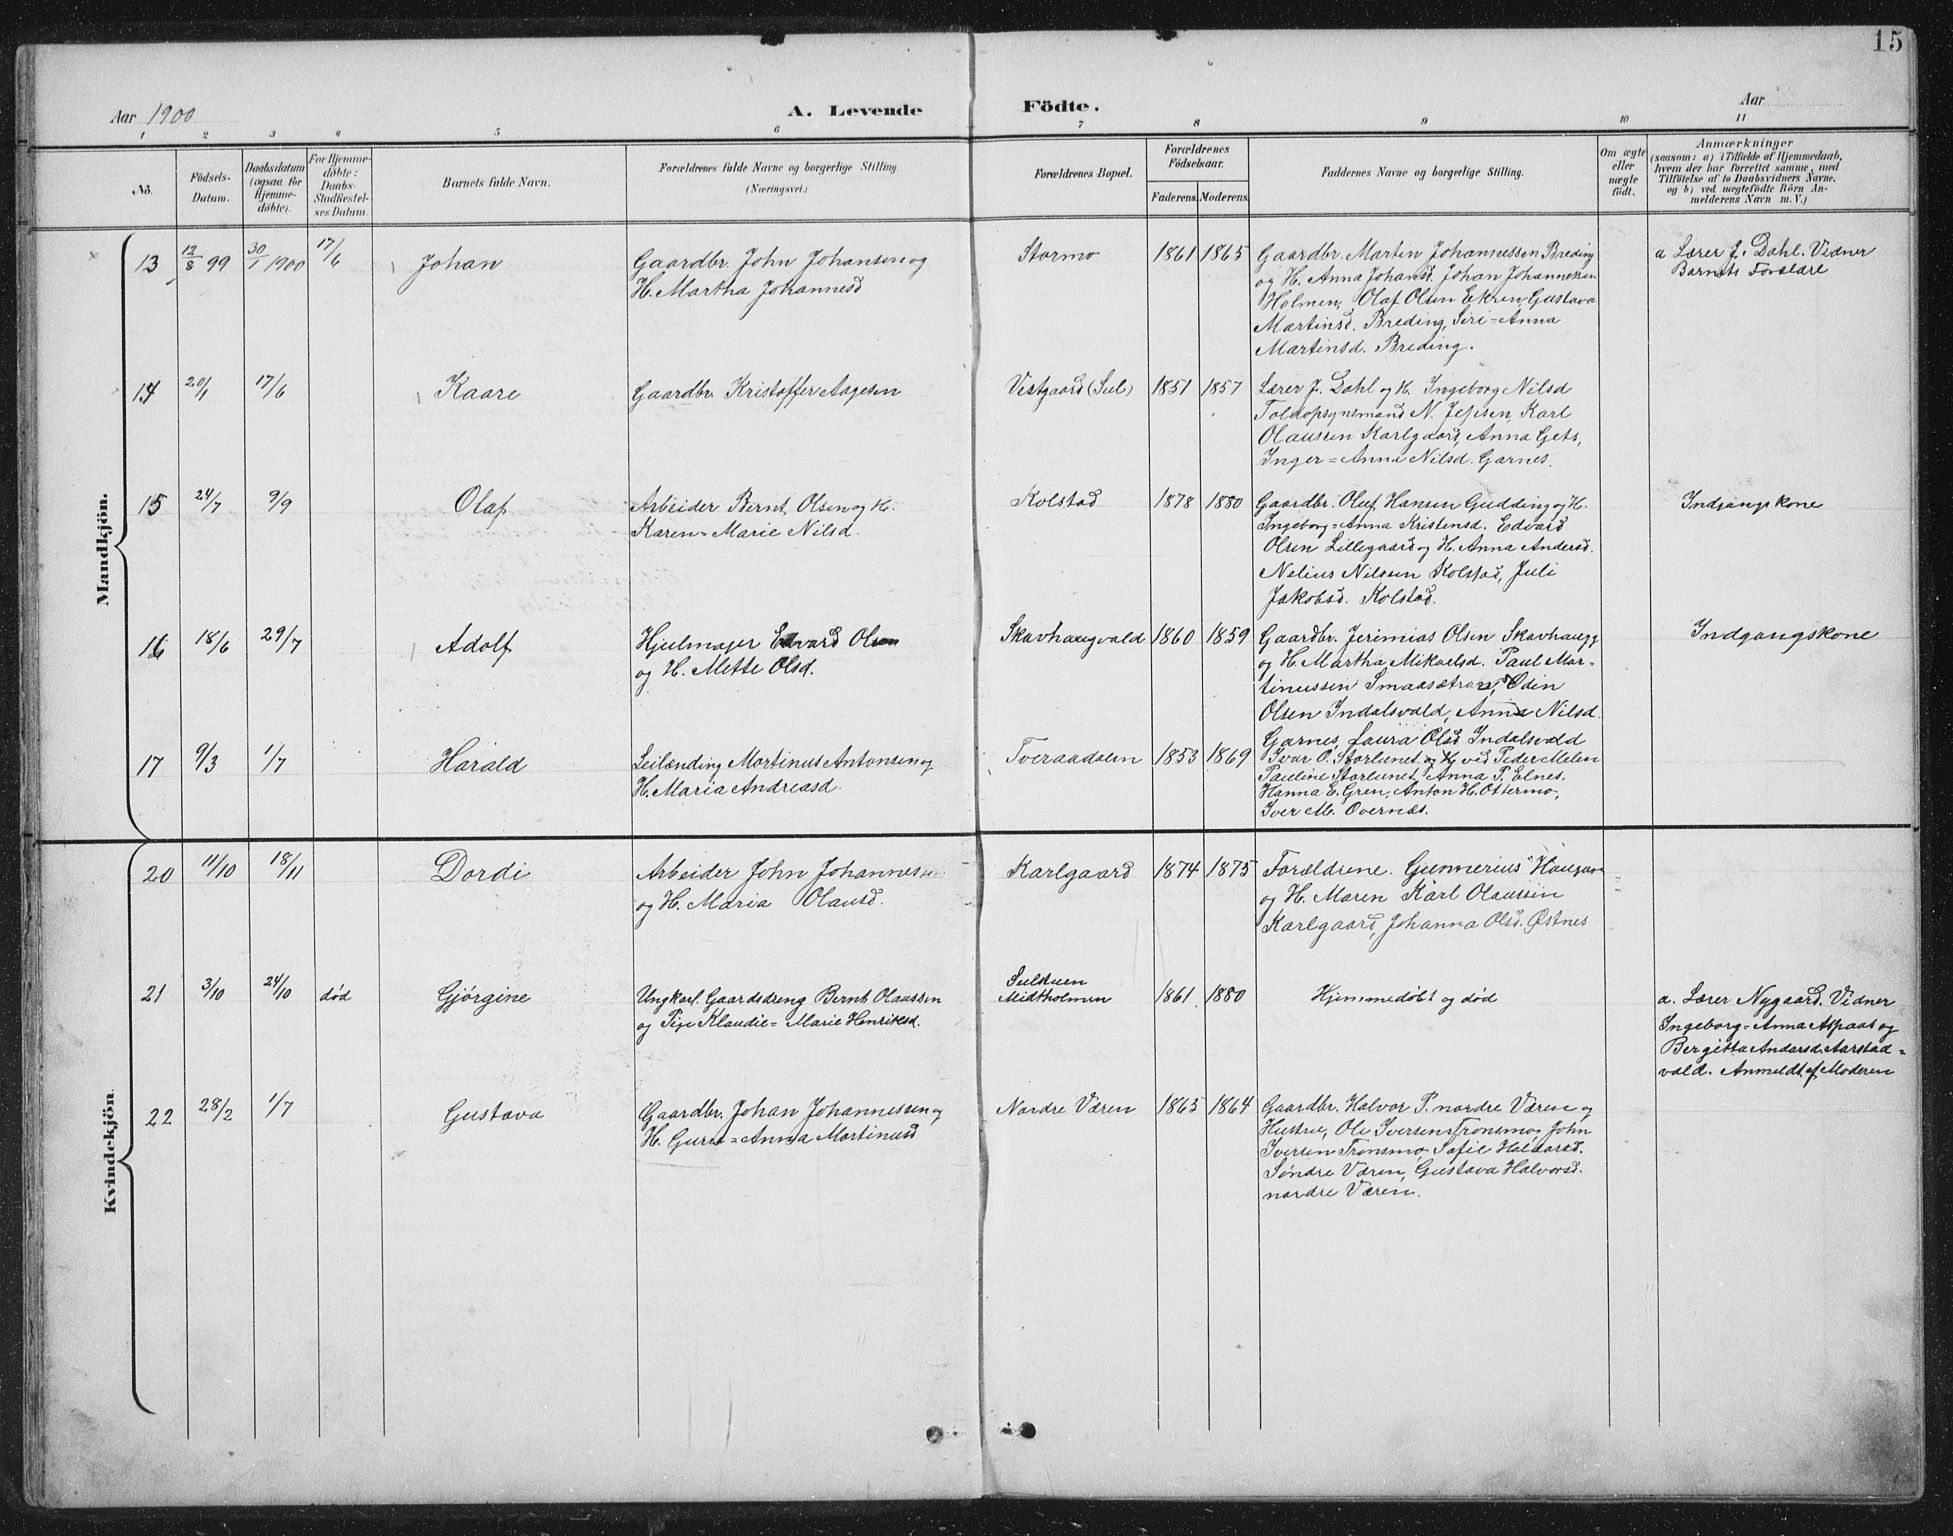 15
Aar 1900
A. Levende
Födte.
Aar
1 2 3 4 5 6 7 8 9 10 11
No.
Födsels-
Datum.
Daabsdatum
(ogsaa for
Hjemme-
döbte).
For Hjemme-
döbte:
Daabs-
Stadfæstel-
ses Datum.
Barnets fulde Navn.
Forældrenes fulde Navne og borgerlige Stilling.
(Næringsvei.)
Forældrenes Bopæl.
Forældrenes
Födselsaar.
Faderens. Moderens.
Faddernes Navne og borgerlige Stilling.
Om ægte
eller
uægte
födt.
Anmærkninger
(saasom: a) i Tilfælde af Hjemmedaab,
hvem der har forrettet samme, med
Tilföielse af to Daabsvidners Navne,
og b) ved uægtefödte Börn An-
melderens Navn m. V.)
Mandkjön.
13 12/8 99 30/1 1900 17/6 Johan
Gaardbr. John Johansen og
H. Martha Johannesd
Stormo 1861 1865
Gaardbr. Martin Johannessen Breding
og H. Anna Johansd. Johan Johannessen
Holmen, Olaf Olsen Ekren, Gustava
Martinsd. Breding, Siri=Anna
Martinsd. Breding.
a Lærer J. Dahl. Vidner
Barnets Forældre
14 20/1 17/6 Kaare
Gaardbr. Kristoffer Aagesen
Vestgaard (Sul) 1851 1857
Lærer J. Dahl og H. Ingeborg Nilsd
Toldopsynsmand N. Jepsen, Karl
Olaussen Karlgaard, Anna Gets,
Inger=Anna Nilsd. Garnes.
15 24/7 9/9 Olaf
Arbeider Bernt Olsen og H.
Karen=Marie Nilsd.
Kolstad 1878 1880
Gaardbr. Oluf Hansen Gudding og H.
Ingeborg=Anna Kristensd. Edvard
Olsen Lillegaard og H. Anna Andersd.
Nelius Nilssen Kolstad, Juli
Jakobsd. Kolstad.
Indgangskone
16 18/6 29/7 Adolf
Hjulmager Edvard Olsen
og H. Mette Olsd.
Skavhaugvald 1860 1859
Gaardbr. Jerimias Olsen Skavhaugg
og H. Martha Mikaelsd. Paul Mar-
tinussen Odin
Olsen Indalsvald, Anna Nilsd.
Garnes, Laura Olsd Indalsvald
Indgangskone
17 9/3 1/7 Harald
Leilænding Martinus Antonsen og
H. Maria Andreasd.
Tveraadalen 1853 1869
Ivar O. Storlunet og H. ved Peder Melen
Pauline Storlunet, Anna P. Elnes.
Hanna E. Gren, Anton H. Ottermo,
Iver M. Overnæs.
Kvindekjön.
20 11/10 18/11 Dordi
Arbeider John Johannessen
og H. Maria Olausd.
Karlgaard 1874 1875
Forældrene. Gunnerius Haugan
og H. Maren Karl Olaussen
Karlgaard, Johanna Olsd. Østnes
21 3/10 24/10 død Gjörgine
Ungkarl. Gaardsdreng Bernt Olaussen
og Pige Klaudie=Marie Henriksd.
Sulstuen
Midtholmen 1861 1880
Hjemmedøbt og død
a. Lærer Nygaard. Vidner
Ingeborg=Anna Aspaas og
Bergitta Andersd. Aarstad=
vald. Anmeldt af Moderen
22 28/2 1/7 Gustava
Gaardbr. Johan Johannessen og
H. Guru=Anna Martinusd
Nordre Væren 1865 1864
Gaardbr. Halvor P. nordre Væren og
Hustru, Ole Iversen Tronsmo, John
Iversen Tronsmo, Sofie Haldorsd.
Søndre Væren, Gustava Halvorsd.
nordre Væren.